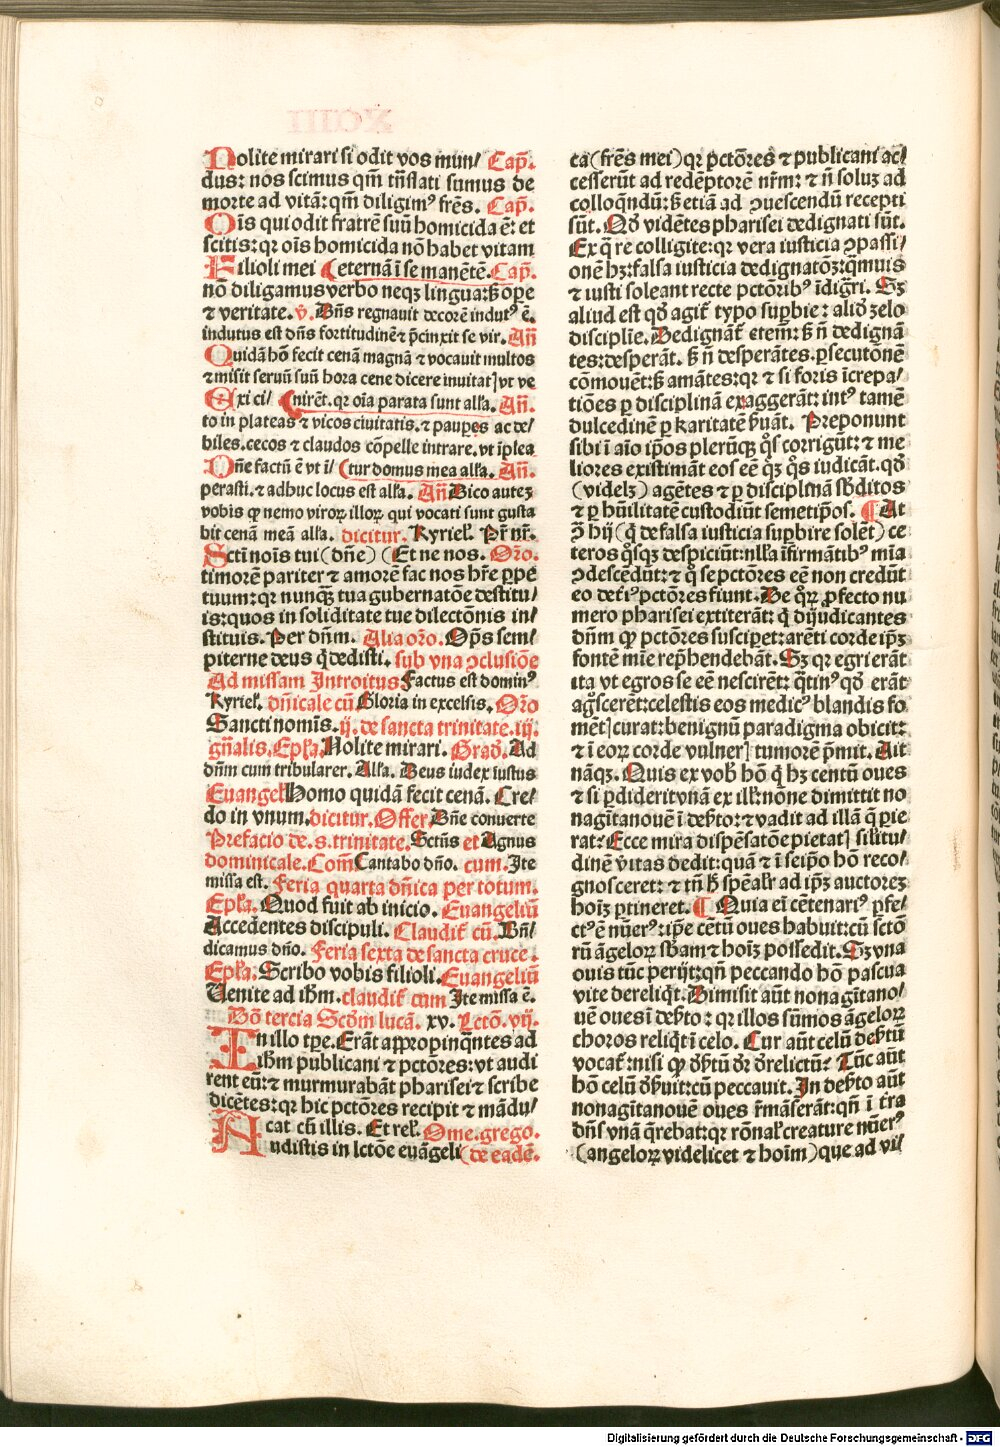 Nolite mirari si odit vos mun/ Cap̄.
dus: nos scimus qm̄ trāslati sumus de
morte ad vitā: qm̄ diligimꝰ frēs. Cap̄.
Oīs qui odit fratrē suū homicida ē: et
scitis: qꝛ oīs homicida nō habet vitam
Filioli mei (eternā ī se manētē. Cap̄.
nō diligamus verbo neqꝫ lingua: sꝫ oꝑe
⁊ veritate. v̄. Dn̄s regnauit decorē indutꝰ ē.
indutus est dn̄s fortitudinē ⁊ p̄cinxit se vir. An̄
Quidā hō fecit cenā magnā ⁊ vocauit multos
⁊ misit seruū suū hora cene dicere inuitat] vt ve
Exi ci/ (nirēt. qꝛ oīa parata sunt all'a. An̄.
to in plateas ⁊ vicos ciuitatis. ⁊ pauꝑes ac de/
biles. cecos ⁊ claudos cōpelle intrare. vt īplea
Dn̄e factū ē vt i/ (tur domus mea all'a. An̄.
perasti. ⁊ adhuc locus est all'a. An̄ Dico autez
vobis ꝙ nemo viroꝝ illoꝝ qui vocati sunt gusta
bit cenā meā all'a. dicitur. Kyriel'. Pr̄ nr̄.
Scti noīs tui (dn̄e) (Et ne nos. Oro.
timorem pariter ⁊ amorē fac nos hr̄e ꝑpe
tuum: qꝛ nunqꝫ tua gubernatōe destitu/
is: quos in soliditate tue dilectōnis in/
stituis. Per dn̄m. Alia oro. Op̄s sem/
piterne deus q̇ dedisti. sub vna ꝯclusiōe
Ad missam Introitus Factus est dominꝰ
Kyriel'. dn̄icale cū Gloria in excelsis. Oro
Sancti nomīs. ij. de sancta trinitate. iij.
gn̄alis. Epl'a. Nolite mirari. Grad'. Ad
dn̄m cum tribularer. All'a. Deus iudex iustus
Euangel' Homo quidā fecit cenā. Cre/
do in vnum. dicitur. Offer. Dn̄e conuerte
Prefacio de. s. trinitate. Sctūs et Agnus
dominicale. Com̄ Cantabo dn̄o. cum. Ite
missa est. Feria quarta dn̄ica per totum.
Epl'a. Quod fuit ab inicio. Euangeliū
Accedentes discipuli. Claudit' cū. Bn̄/
dicamus dn̄o. Feria sexta de sancta cruce.
Epl'a. Scribo vobis filioli. Euangeliū
Venite ad ih̄m. claudit' cum Ite missa ē.
Dō tercia Scd'm lucā. xv. Lctō. vij.
In illo tp̄e. Erāt appropinq̄ntes ad
ih̄m publicani ⁊ pctōres: vt audi
rent eū: ⁊ murmurabāt pharisei ⁊ scribe
dicētes: qꝛ hic pctōres recipit ⁊ mādu/
cat cū illis. Et rel'. Ome. grego.
Audistis in lctōe euāgeli (de eadē.
ca (frēs mei) qꝛ pctōres ⁊ publicani ac/
cesserūt ad redēptorē nr̄m: ⁊ n̄ soluꝫ ad
colloqn̄dū: sꝫ etiā ad ꝯuescendū recepti
sūt. Qd' vidētes pharisei dedignati sūt.
Ex q̄ re colligite: qꝛ vera iusticia ꝯpassi/
onē hꝫ: falsa iusticia dedignatōꝫ: q̄muis
⁊ iusti soleant recte pctōribꝰ īdigr̄i. Sꝫ
aliud est qd' agit' typo suꝑbie: alid' zelo
disciplīe. Dedignāt' etem̄: sꝫ n̄ dedignā
tes: desperāt. sꝫ n̄ desperātes. ꝑsecutōnē
cōmouēt: sꝫ amātes: qꝛ ⁊ si foris īcrepa/
tiōes ꝑ disciplinā exaggerāt: intꝰ tamē
dulcedinē ꝑ karitatē ẜuāt. Preponunt
sibi ī aīo ip̄os plerūqꝫ q̊s corrigūt: ⁊ me
liores existimāt eos eē qꝫ q̊s iudicāt. qd'
(videlꝫ) agētes ⁊ ꝑ disciplinā sb'ditos
⁊ ꝑ hūilitatē custodiūt semetip̄os. ¶ At
ꝯ hij (q̇ de falsa iusticia suꝑbire solēt) ce
teros q̊sqꝫ despiciūt: nll'a īfirmātibꝰ mīa
ꝯdescēdūt: ⁊ q̊ se pctōres eē non credūt
eo det'iꝰ pctōres fiunt. De q̊ꝝ ꝓfecto nu
mero pharisei extiterāt: q̇ dijudicantes
dn̄m ꝙ pctōres susciꝑet: arēti corde ip̄ꝫ
fontē mīe rep̄hendebāt. Sꝫ qꝛ egri erāt
ita vt egros se eē nescirēt: q̄tinꝰ qd' erāt
ag̊scerēt: celestis eos medicꝰ blandis fo
mēt] curat: benignū paradigma obicit:
⁊ ī eoꝝ corde vulner] tumorē p̄mit. Ait
nāqꝫ. Quis ex vob' hō q̇ hꝫ centū oues
⁊ si ꝑdiderit vnā ex ill': nōne dimittit no
nagītanouē ī deb'to: ⁊ vadit ad illā q̄ ꝑie
rat: Ecce mira dispēsatōe pietat] silitu/
dinē v̄itas dedit: quā ⁊ ī seip̄o hō reco/
gnosceret: ⁊ tn̄ h̄ sp̄eal'r ad ip̄ꝫ auctoreꝫ
hoīꝫ ꝑtineret. ¶ Quia ei cētenariꝰ ꝑfe/
ctꝰ ē nūerꝰ: ip̄e cētū oues habuit: cū sctō
rū āgeloꝝ sb'am ⁊ hoīꝫ possedit. Sꝫ vna
ouis tūc perijt: qn̄ peccando hō pascua
vite dereliq̇t. Dimisit aūt nonagītano/
uē oues ī deb'to: qꝛ illos sūmos āgeloꝝ
choros reliq̇t ī celo. Cur aūt celū deb'tū
vocat': nisi ꝙ d'b'tū dr̄ d'relictū? Tūc aūt
hō celū d'ẜuit: cū peccauit. In deb'to aūt
nonagītanouē oues r̄māserāt: qn̄ ī tr̄a
dn̄s vnā q̄rebat: qꝛ rōnal' creature nūerꝰ
(angeloꝝ videlicet ⁊ hoīm) que ad vi/
Digitalisierung gefördert durch die Deutsche Forschungsgemeinschaft - DFG